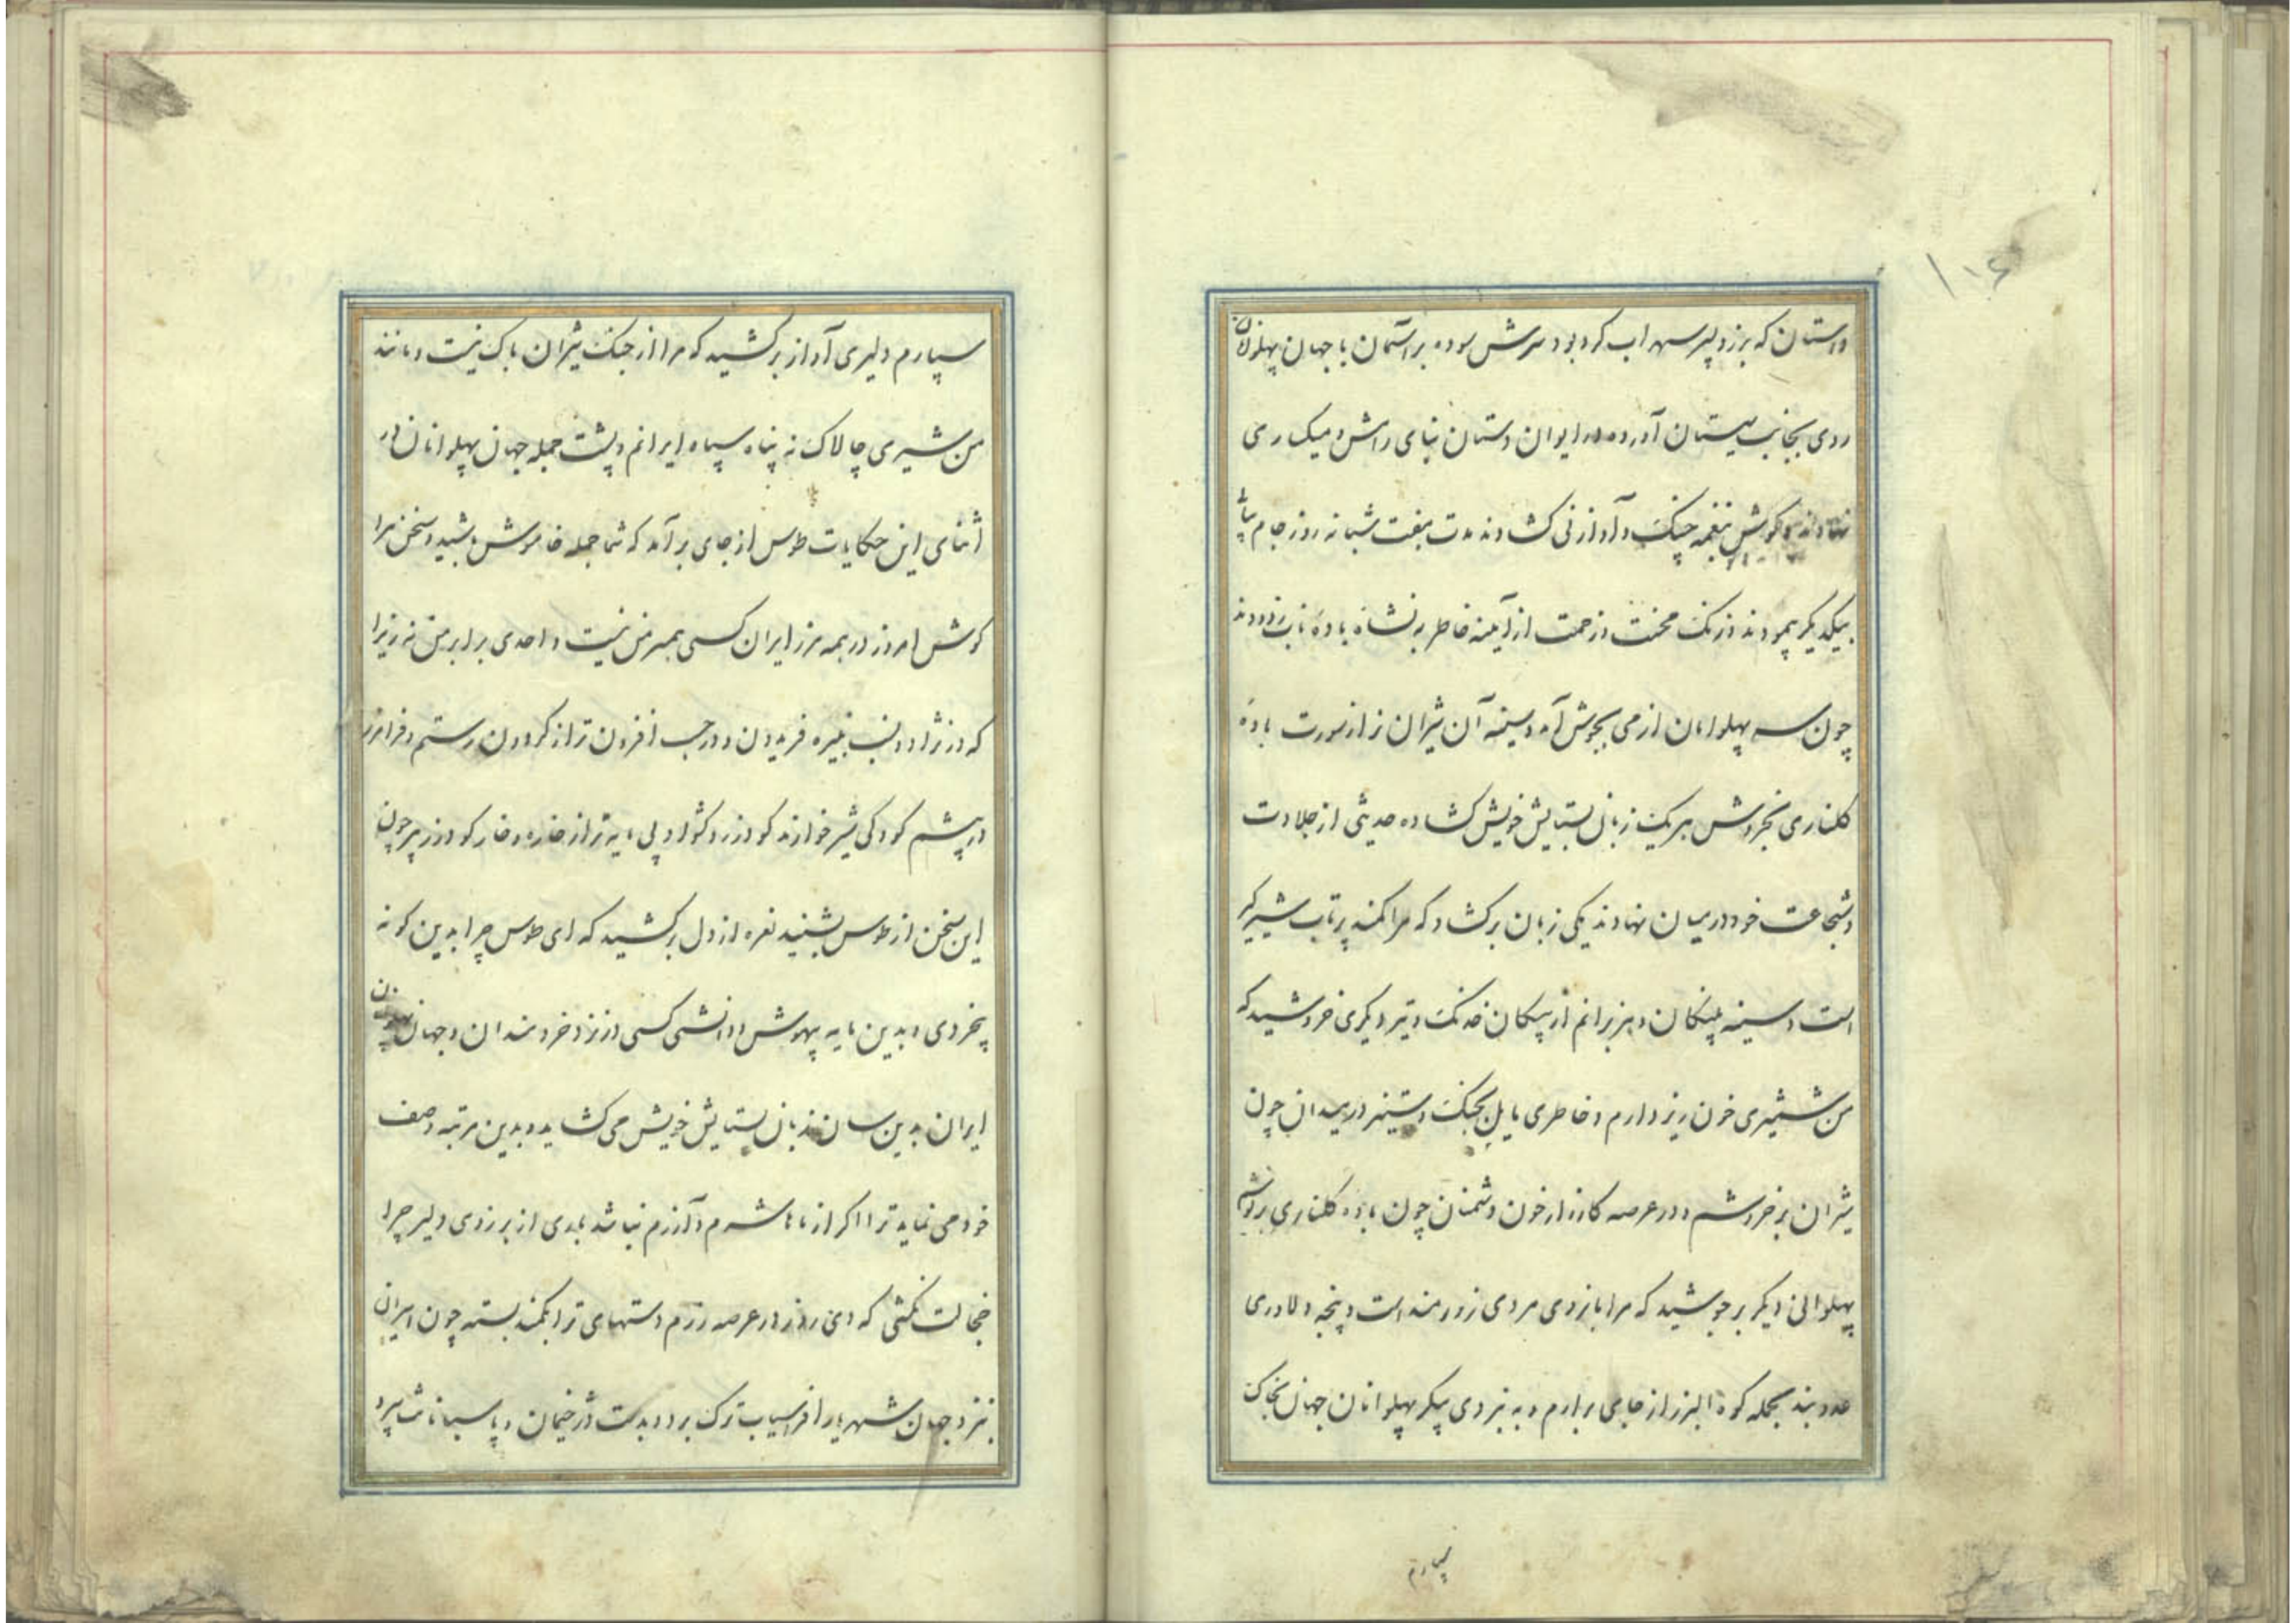 ۱۰۶
داستان که برزو پسر سهراب کرد بود سرش سوده بر آسمان با جهان پهلوانان
روی بجانب سیستان آورده در ایوان دستان بنای رامش و میکساری
نهادند و کوش بنغمه چنک و آواز نی کشادند مدت هفت شبانه روز جام پیاپی
بیکدیکر پیمودند و زنک محنت و زحمت از آینه خاطر به نشاهٔ بادهٔ ناب زدودند
چون سر پهلوانان از می بجوش آمد و سینه آن شیران نر از سورت بادهٔ
کلناری بخروش هر یک زبان بستایش خویش کشاده حدیثی از جلادت
و شجاعت خود در میان نهادند یکی زبان برکشاد که مرا کمند پرتاب شیرکیر
است و سینه پلنکان و هزبرانم از پیکان خدنک و تیر دیکری خروشید که
من شمشیری خون ریز دارم و خاطری مایل بجنک و ستیز در میدان چون
شیران بر خروشم و در عرصه کارزار خون دشمنان چون بادهٔ کلناری بر نوشم
پهلوانی دیکر بر جوشید که مرا بازوی مردی زورمند است و پنجه دلاوری
عدو بند بحمله کوه البرز از جای برارم و به نبردی پیکر پهلوانان جهان بخاک
سپارم
سپارم دلیری آواز بر کشید که مرا از جنک شیران باک نیست و مانند
من شیری چالاک نه پناه سپاه ایرانم و پشت جمله جهان پهلوانان در
اثنای این حکایات طوس از جای بر آمد که شما جمله خاموش باشید و سخن مرا
کوش امروز در همه مرز ایران کسی همسر من نیست و احدی برابر من نه زیرا
که در نژاد و نسب نبیره فریدون و در حسب افزون تر از کردون رستم و فرامرز
در پیشم کودکی شیر خوارند کودرز و کشواد پی مایه تر از خاره و خار کودرز پیر چون
این سخن از طوس بشنید نعره از دل بر کشید که ای طوس چرا بدین کونه
بیخردی و بدین مایه بیهوش و دانشی کسی در نزد خردمندان و جهان پهلوانان
ایران بدین سان زبان بستایش خویش می کشاید و بدین مرتبه وصف
خود می نماید ترا اکر از ماها شرم و آزرم نباشد بلدی از برزوی دلیر چرا
خجالت نکشی که دی روز در عرصه رزم دستهای ترا بکمند بسته چون اسیران
بنزد جهان شهریار افراسیاب ترک برد و بدست دژخیمان و پاسبانانت سپرد